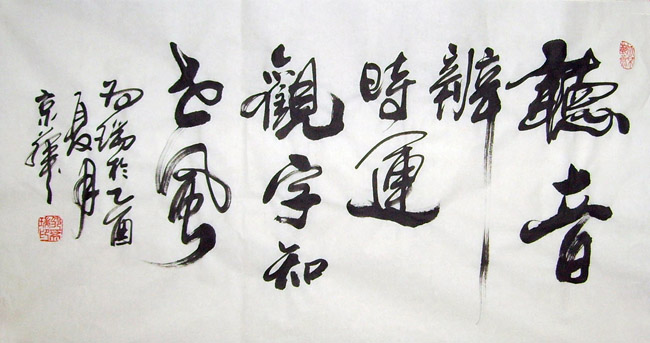 聽音
辨
時運
觀字知
世風
瑞於乙酉
夏月
京華